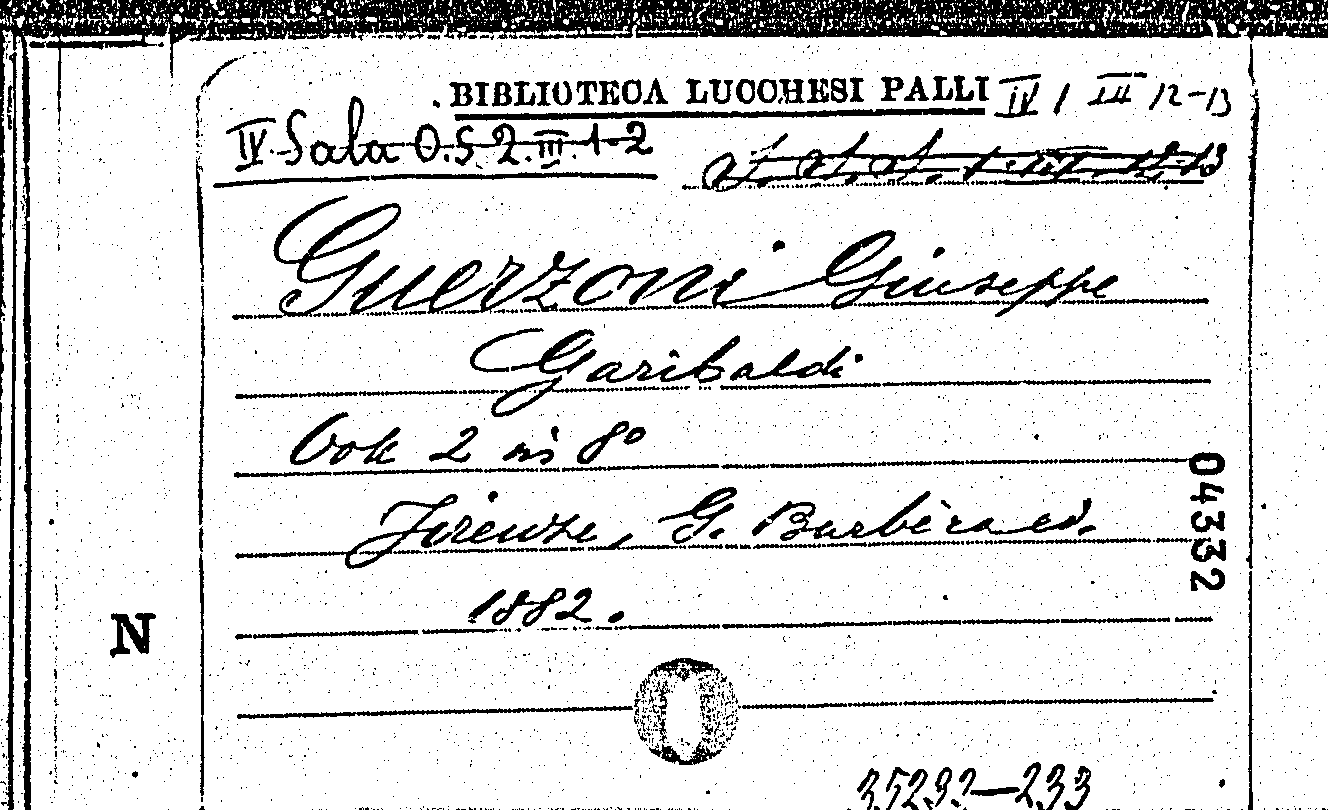 BIBLIOTECA LUCCHESI PALLI IV / III 12-13
IV. Sala O.S. 2. III. 1-2
Guerzoni Giuseppe
Garibaldi
Vol. 2 in 8º
Firenze, G. Barbèra ed.
1882.
04332
N
35292-233